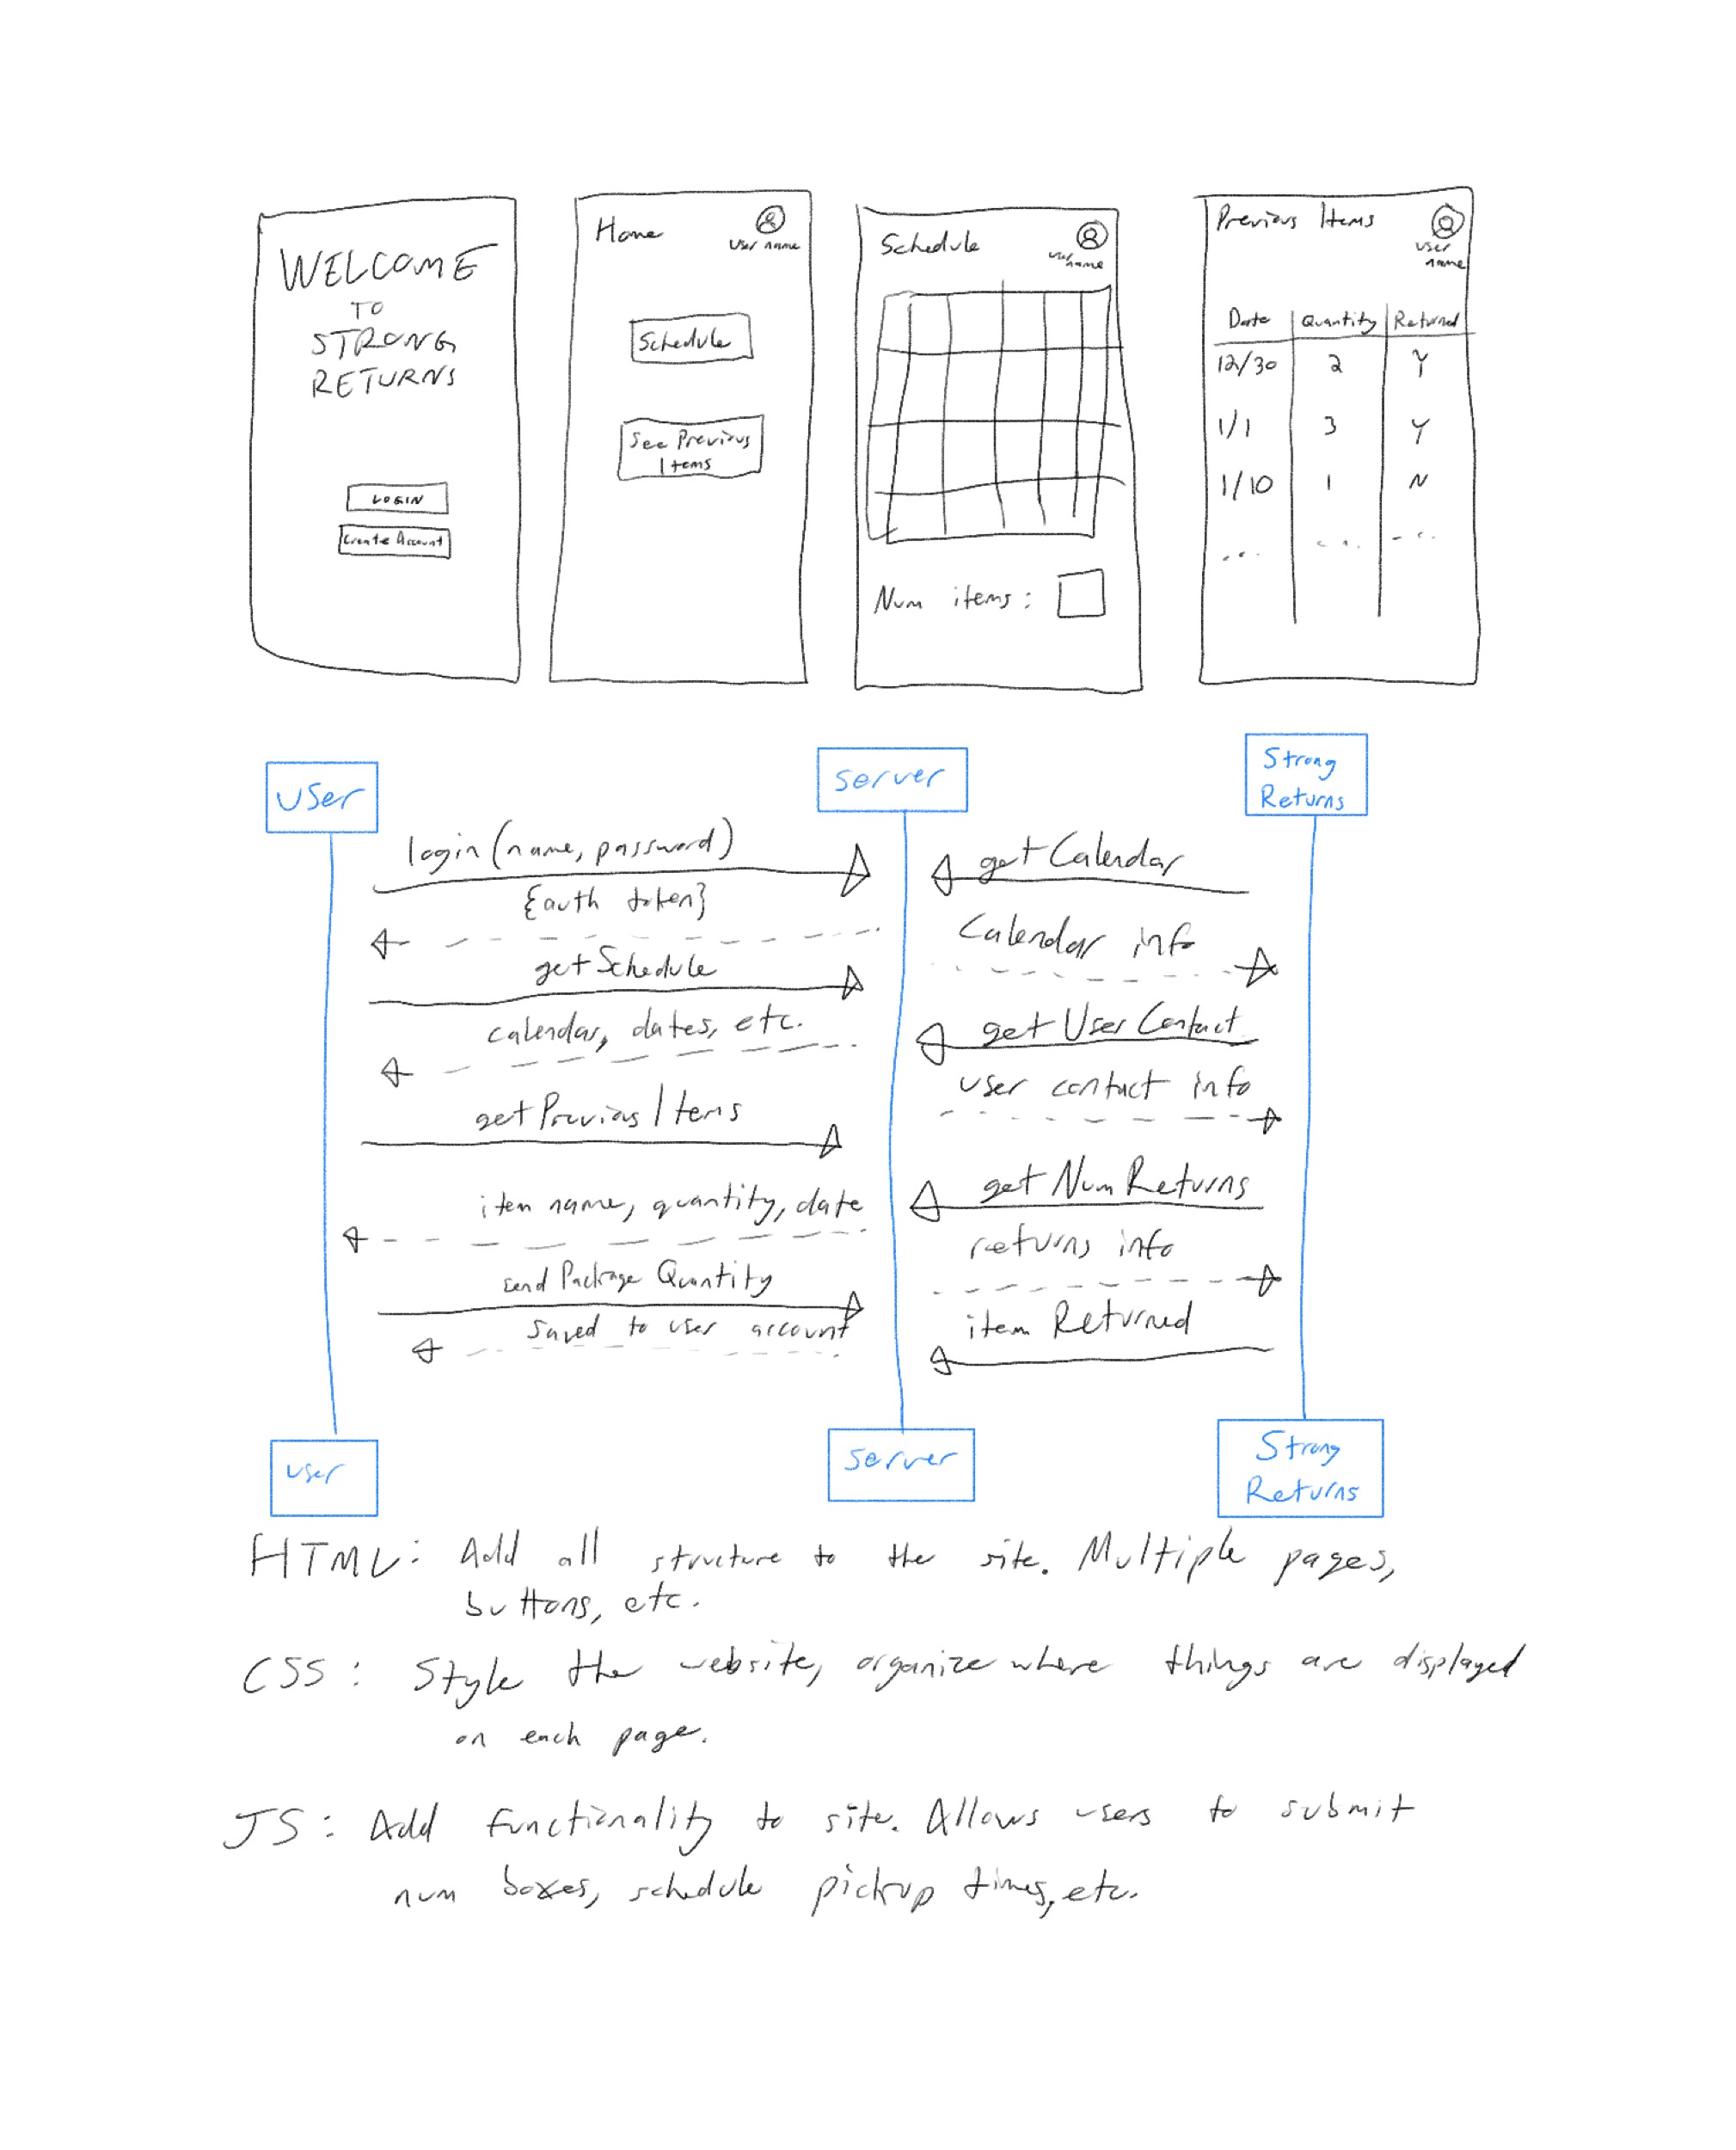 WELCOME
TO
STRONG
RETURNS
LOGIN
Create Account
Home
User name
Schedule
See Previous
Items
Schedule
user name
Num items:
Previous Items
user
name
Date Quantity Returned
12/30 2 Y
1/1 3 Y
1/10 1 N
... ... ...
user
server
Strong
Returns
login(name, password)
{auth token}
getSchedule
calendar, dates, etc.
getPreviousItems
item name, quantity, date
send Package Quantity
saved to user account
getCalendar
Calendar info
getUserContact
user contact info
getNumReturns
returns info
item Returned
user
server
Strong
Returns
HTML: Add all structure to the site. Multiple pages,
buttons, etc.
CSS: Style the website, organize where things are displayed
on each page.
JS: Add functionality to site. Allows users to submit
num boxes, schedule pickup times, etc.